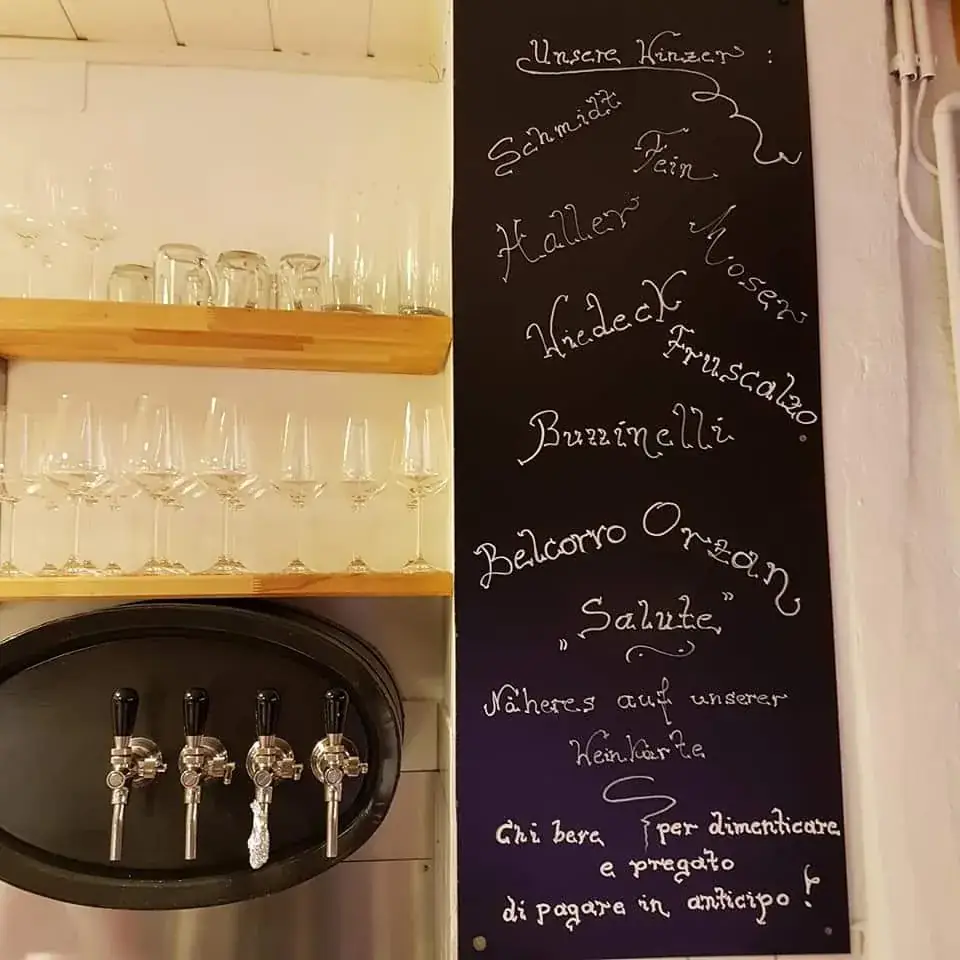 Unsere Winzer :
Schmidt
Fein
Haller
Moser
Wiedeck
Fruscalzo
Buzzinelli
Belcorro Orzan
„Salute”
Näheres auf unserer
Weinkarte
Chi beve per dimenticare
e pregato
di pagare in anticipo !